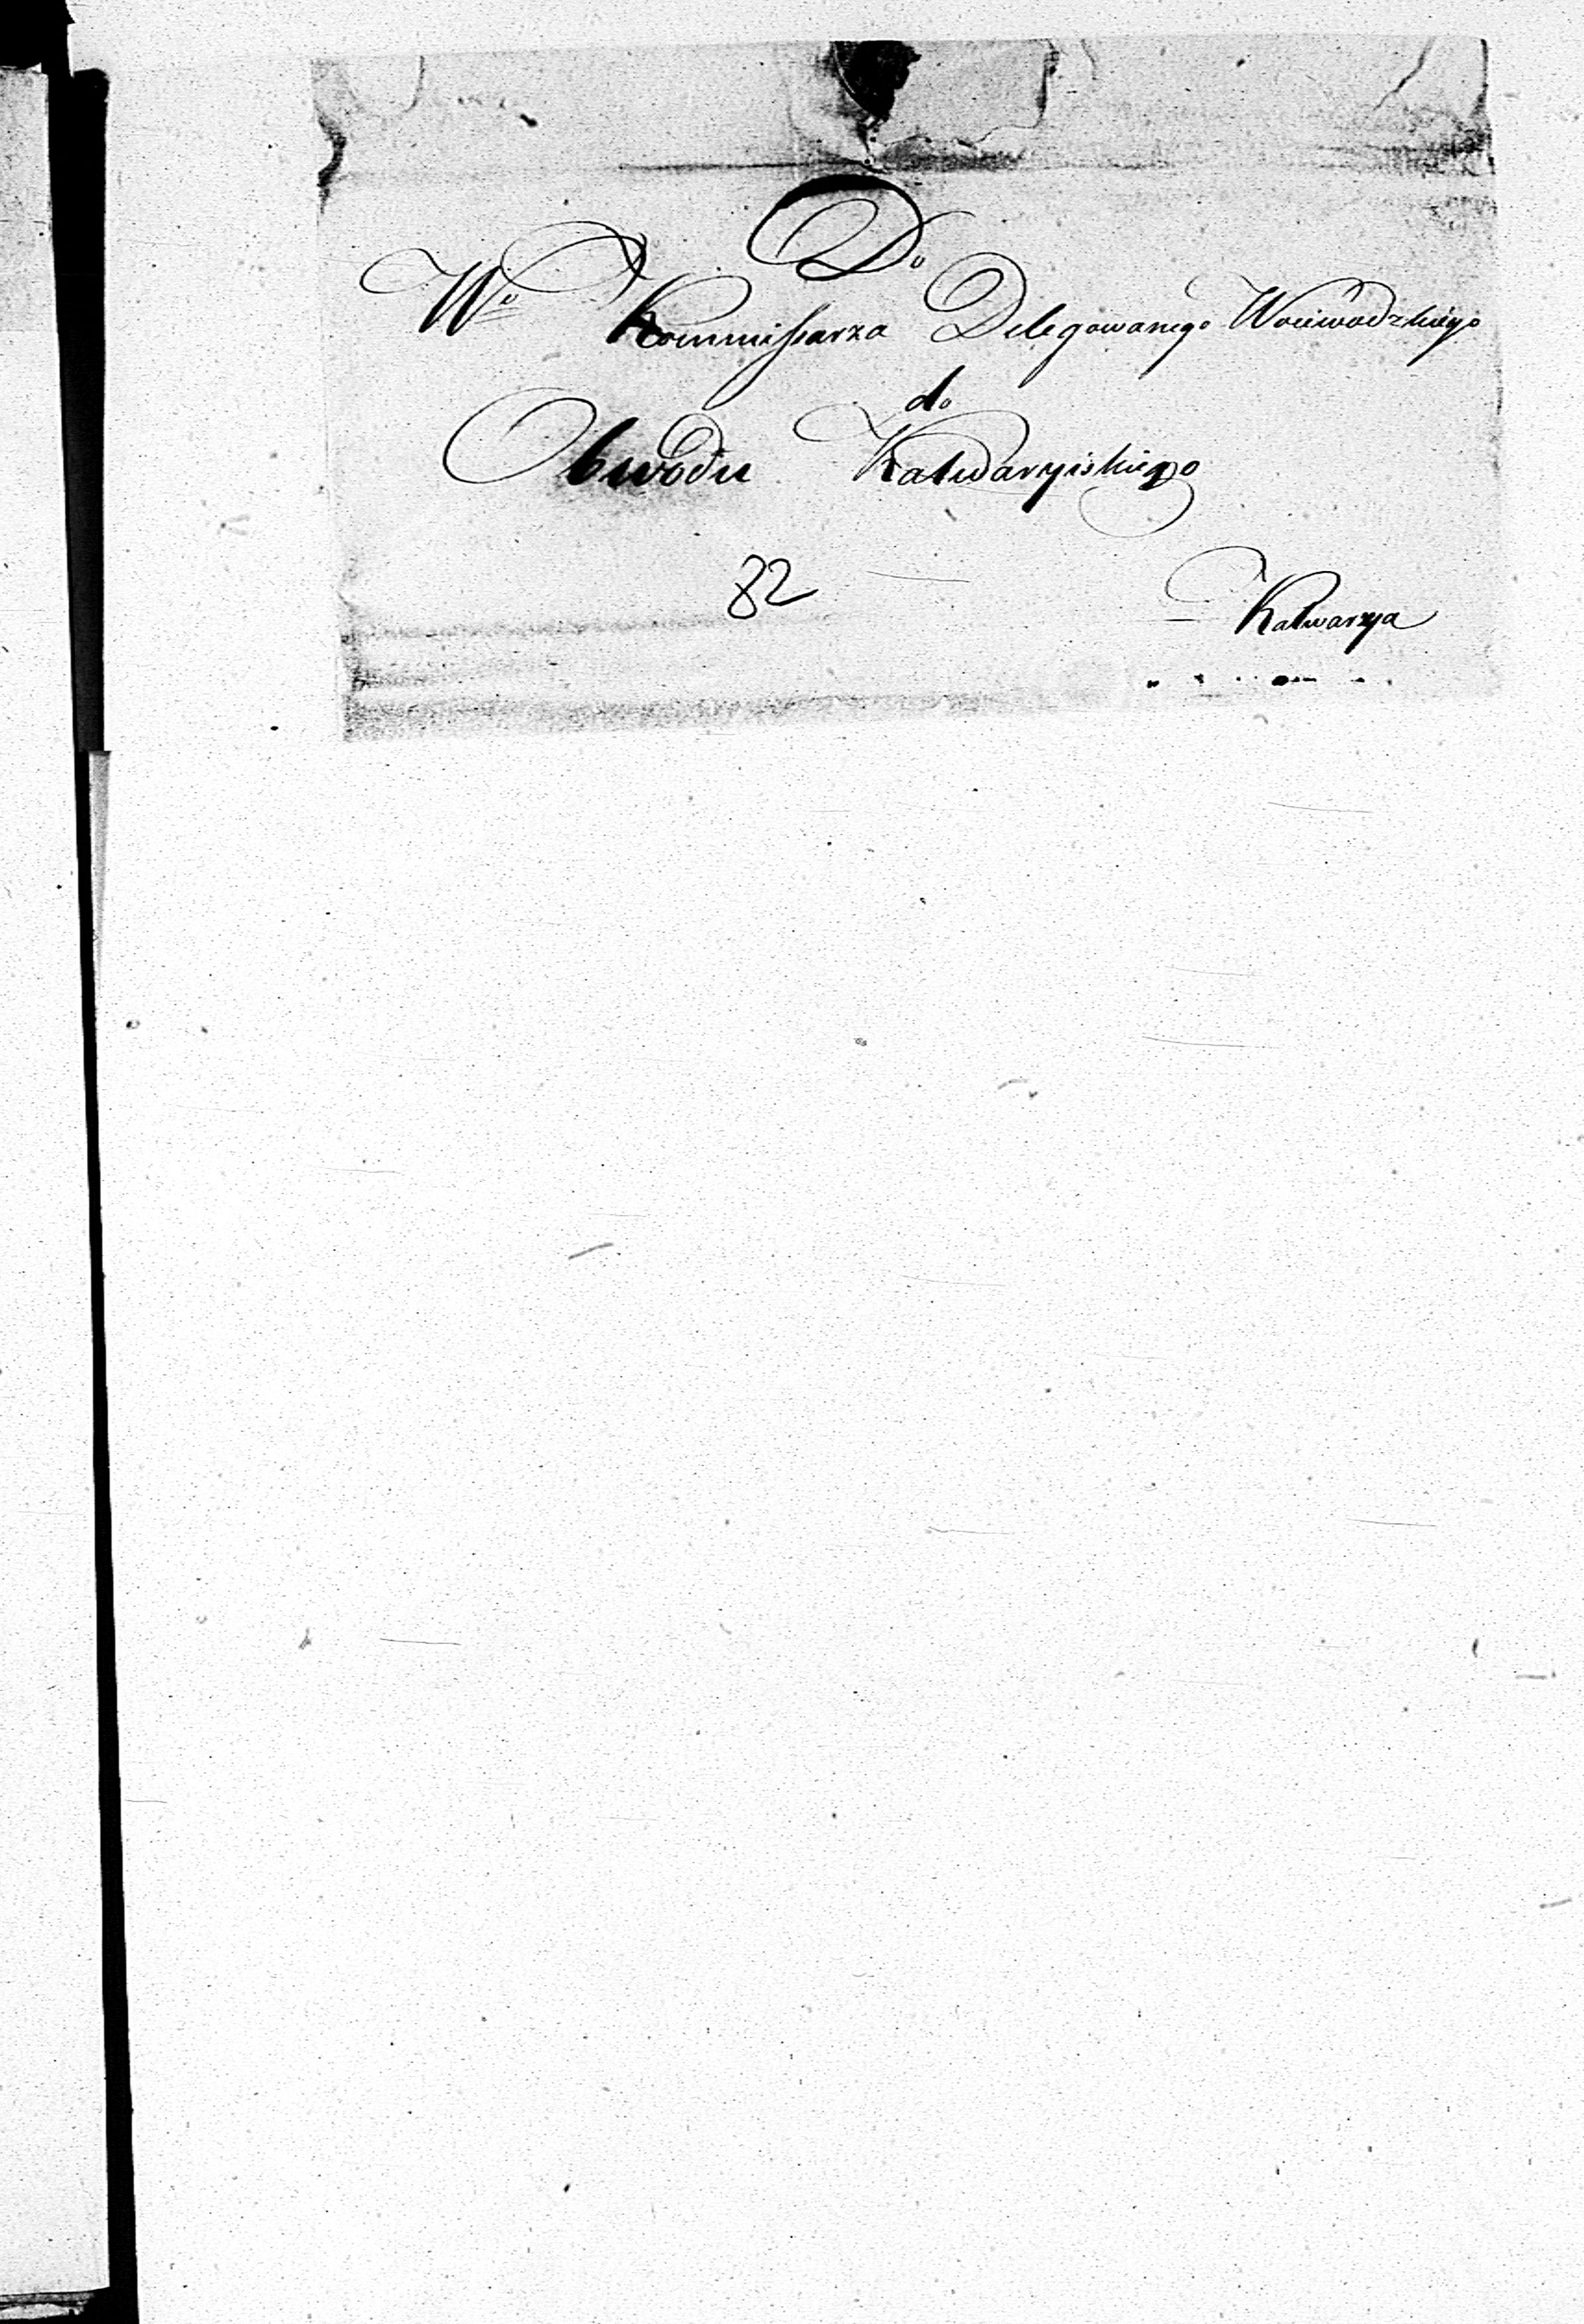 Do
Wo Kommissarza Delegowanego Woiewodzkiego
do
Obwodu Kalwaryiskiego
82
Kalwarya